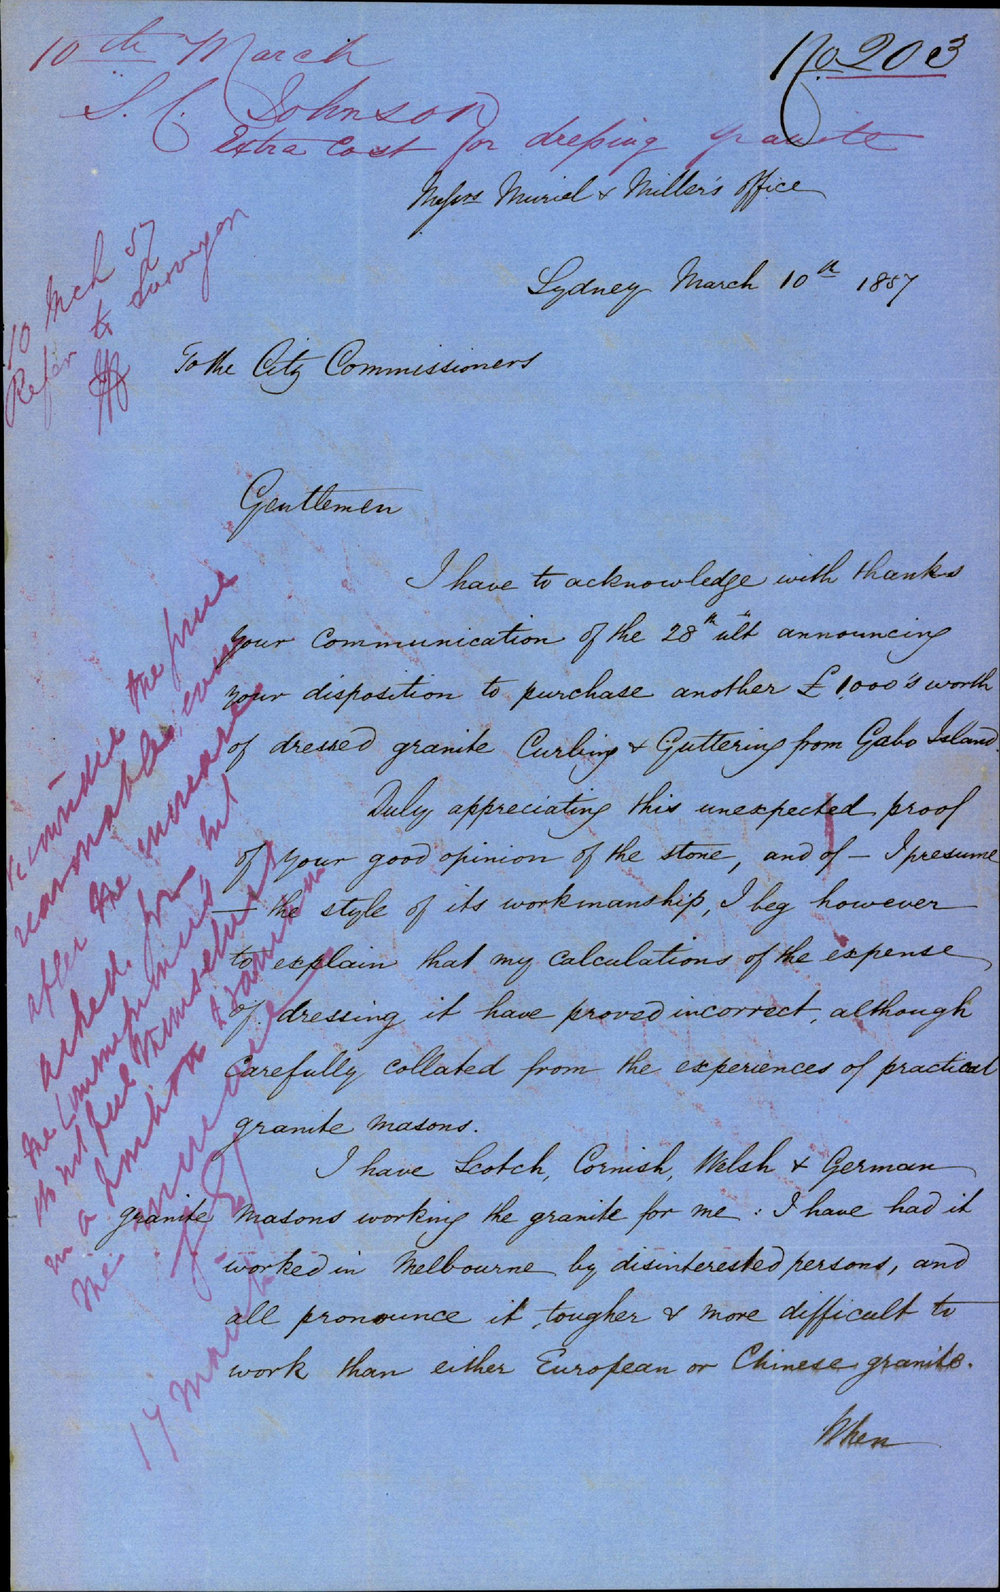 10th March
No 203
S. C. Johnson
Extra Cost for dressing granite
Messrs Muriel & Miller's Office
Sydney March 10th 1857
10 Mch 57
Refer to Surveyor
To the City Commissioners
Gentlemen
I have to acknowledge with thanks
your communication of the 28th ult announcing
your disposition to purchase another £1,000's worth
of dressed granite Curbing & Guttering from Gabo Island.
Duly appreciating this unexpected proof
of your good opinion of the stone, and of — I presume
— the style of its workmanship, I beg however
to explain that my calculations of the expense
of dressing it have proved incorrect, although
Carefully collated from the experiences of practical
granite masons.
I have Scotch, Cornish, Welsh & German
granite masons working the granite for me : I have had it
worked in Melbourne by disinterested persons, and
all pronounce it tougher & more difficult to
work than either European or Chinese granite.
When
I consider the price
reasonable, even
after the increase
asked for, but
the Commissioners
do not feel themselves
in a position to sanction
the increase
17 March